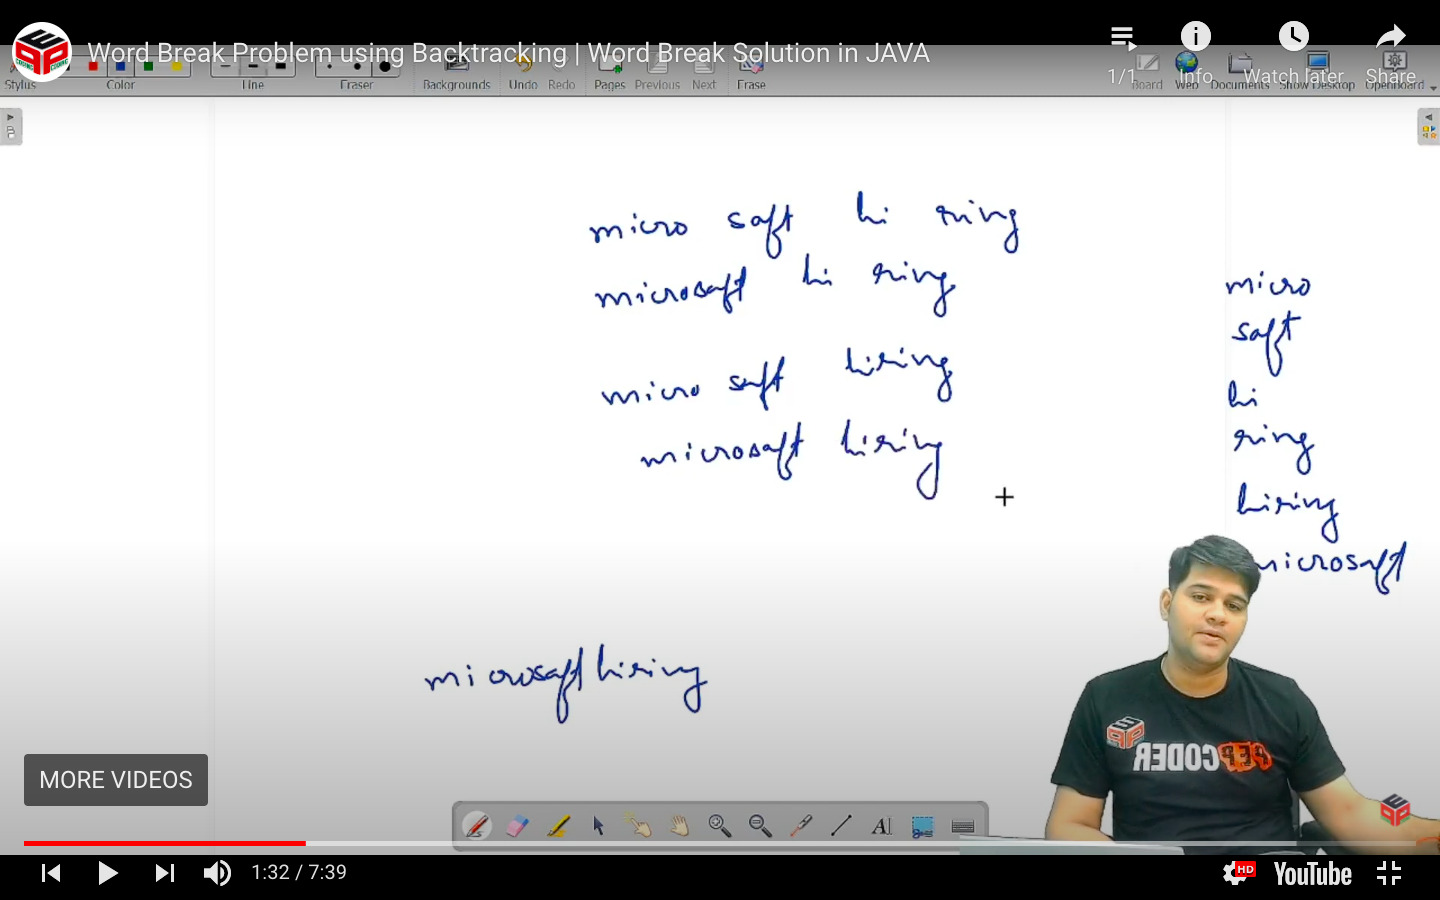 Word Break Problem using Backtracking | Word Break Solution in JAVA
1/1 Info Watch later Share
Stylus Color Line Eraser Backgrounds Undo Redo Pages Previous Next Erase Board Web Documents Show Desktop OpenBoard
micro soft hi ring
microsoft hi ring
micro soft hiring
microsoft hiring
micro
soft
hi
ring
hiring
microsoft
microsoft hiring
PEPCODER
MORE VIDEOS
1:32 / 7:39
HD
YouTube